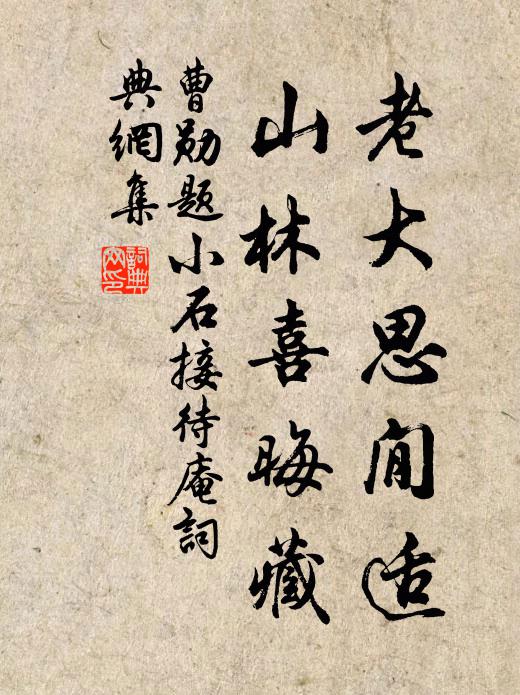 老大思閒适
山林喜晦藏
曹勛題小石接待庵詞
典網集
詞典
網印